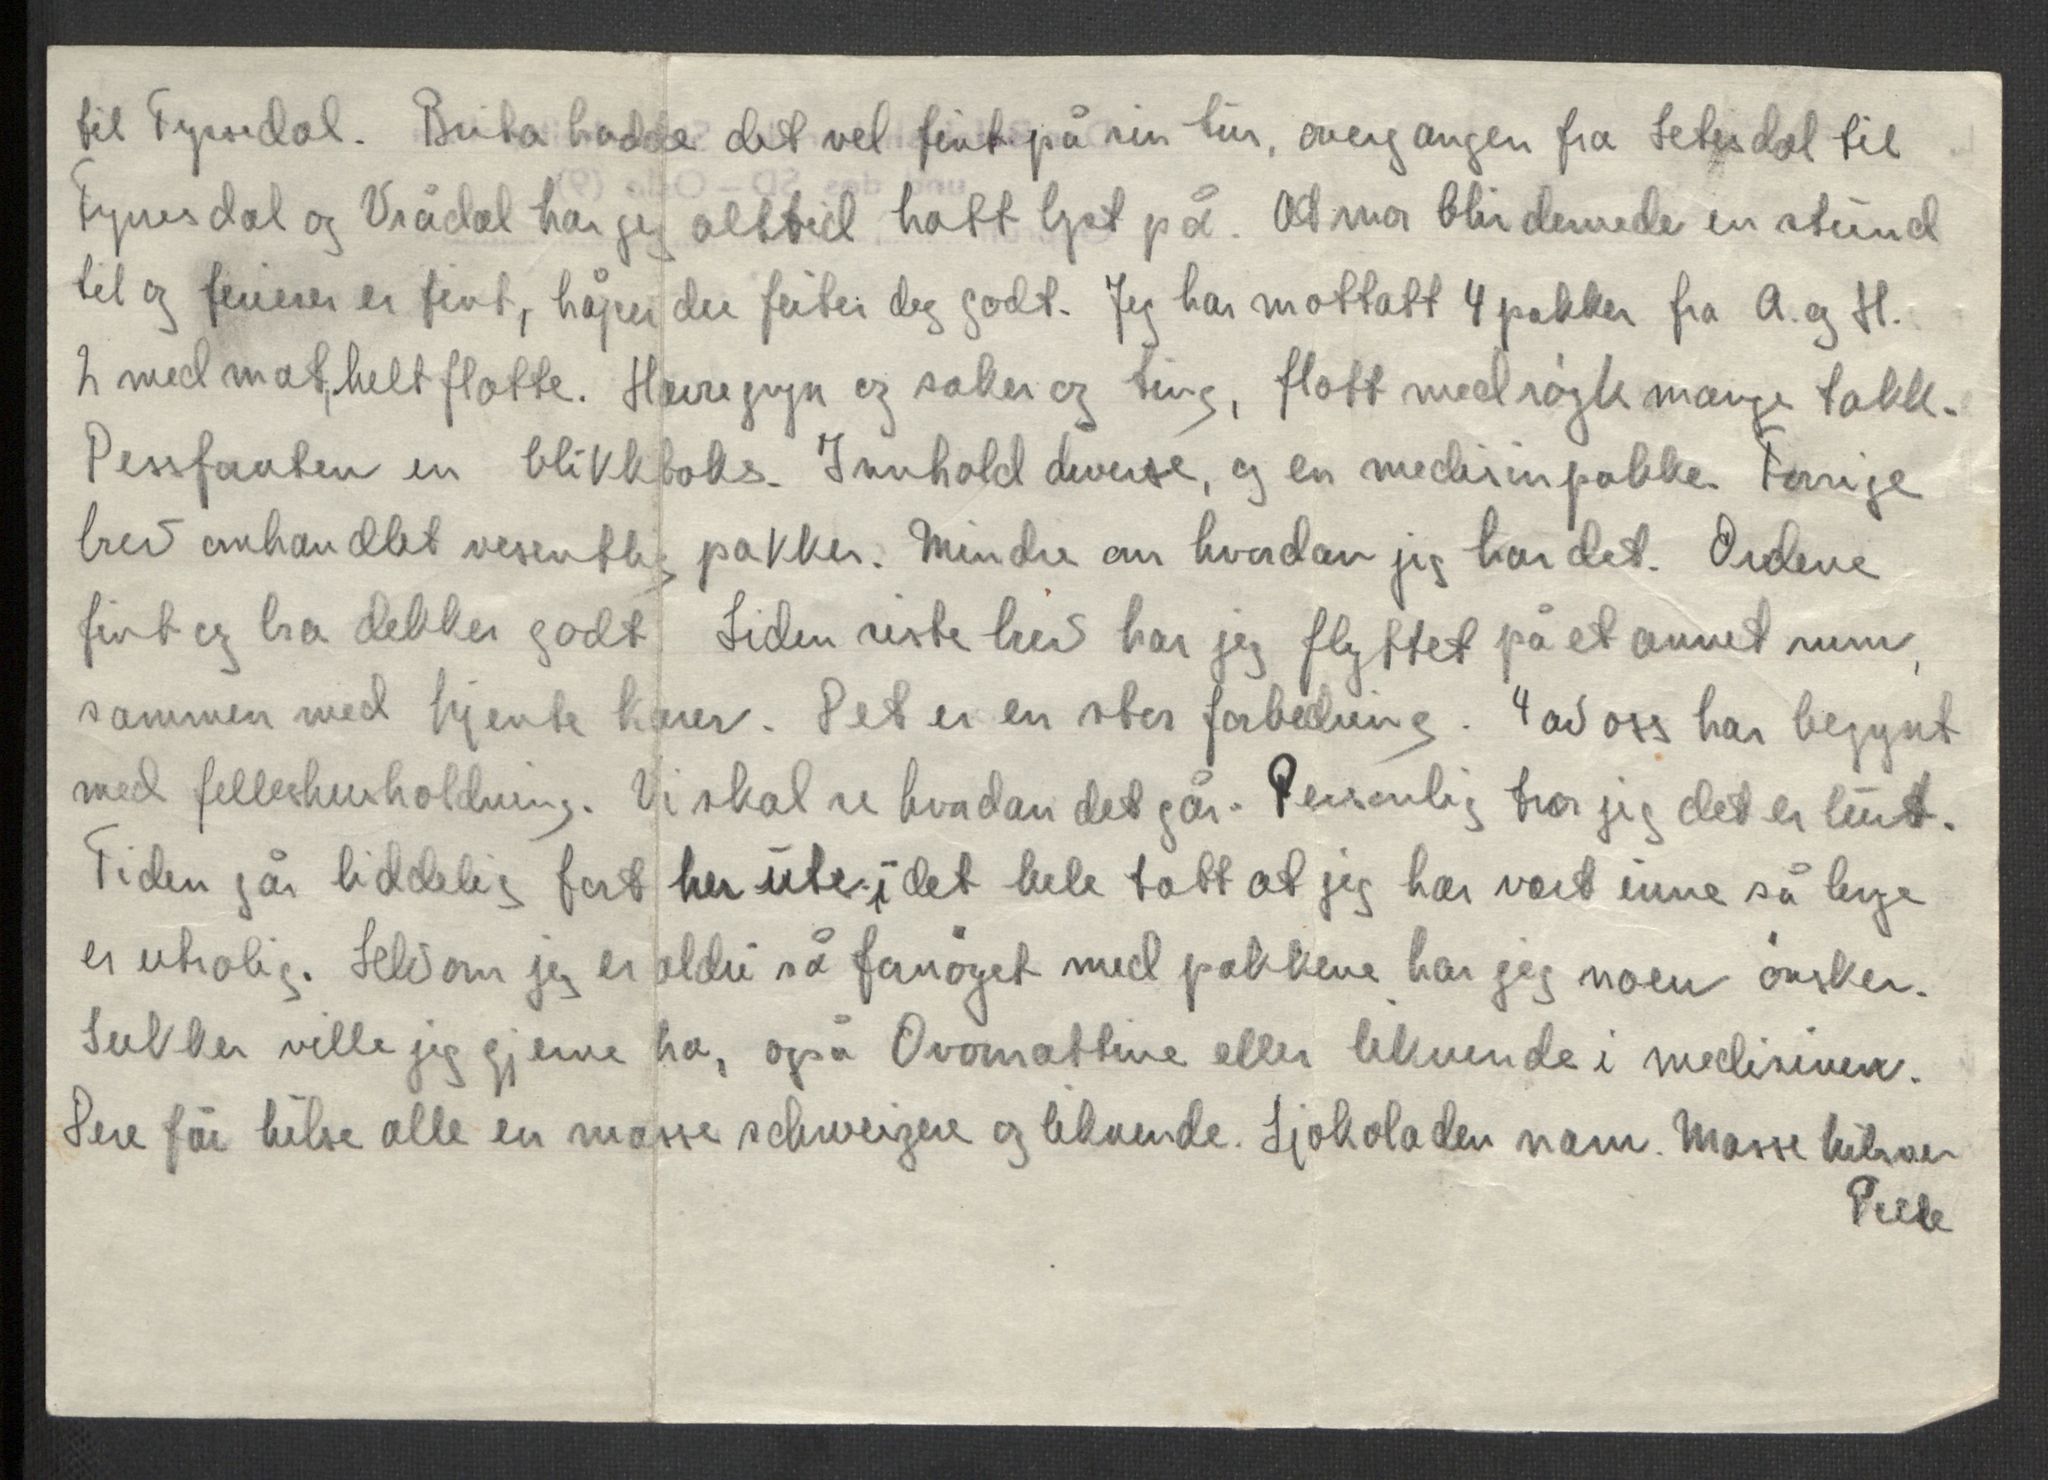 til Tyssedal. Brita hadde det vel fint på sin tur, overgangen fra Setesdal til
Fyresdal og Vrådal har jeg alltid hatt lyst på. At mor blir dernede en stund
til og ferierer er fint, håper du feiter deg godt. Jeg har mottatt 4 pakker fra A. og H.
2 med mat, helt flotte. Havregryn og saker og ting, flott med røyk mange takk.
Pessfanten en blikkboks. Innhold diverse, og en medisinpakke. Forrige
brev omhandlet vesentlig pakker. Mindre om hvordan jeg har det. Ordene
fint og bra dekker godt. Siden siste brev har jeg flyttet på et annet rum,
sammen med kjente karer. Det er en stor forbedring. 4 av oss har begynt
med felleshusholdning. Vi skal se hvordan det går. Personlig tror jeg det er lurt.
Tiden går liddelig fort her ute, i det hele tatt at jeg har vært inne så lenge
er utrolig. Selv om jeg er aldri så fornöyet med pakkene har jeg noen önsker.
Sukker ville jeg gjerne ha, også Ovomaltine eller liknende i medisinen.
Dere får hilse alle en masse schweizere og liknende. Sjokoladen nam. Masse hilsner
Pelle
und das SD – Oslo (9)